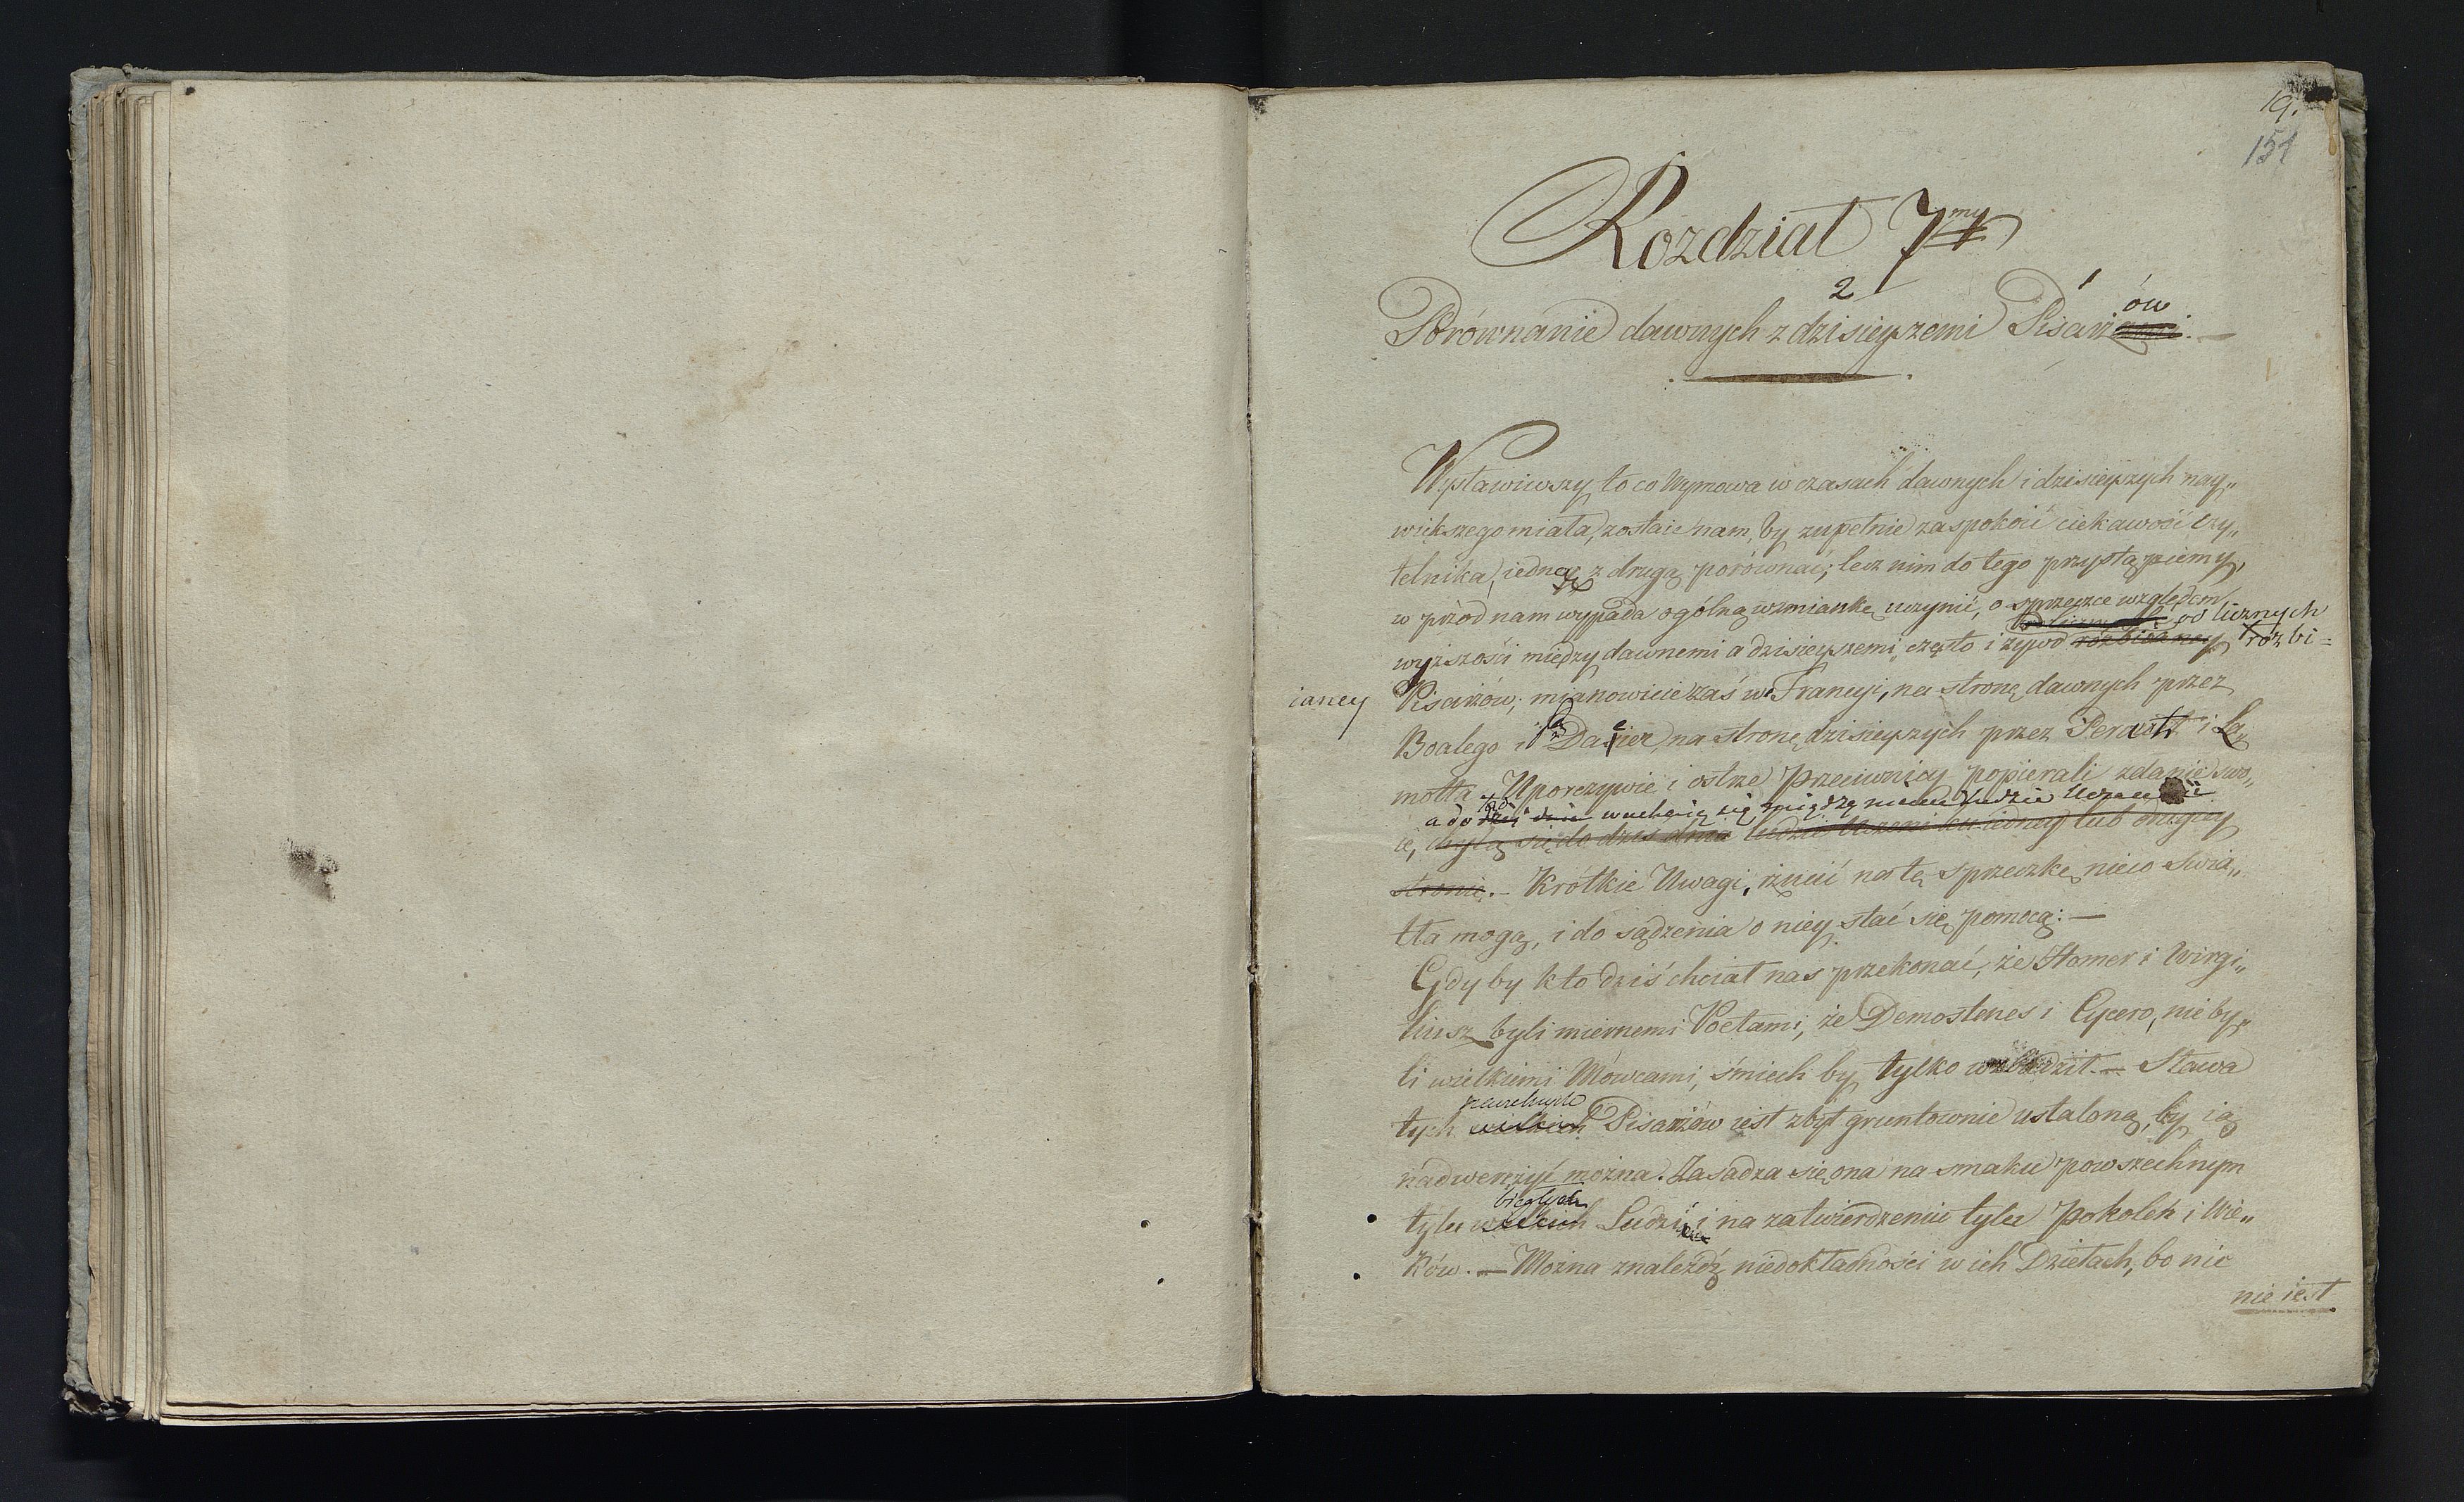 19.
151
Rozdział 7my
2 1 ów
Porównanie dawnych z dzisieyszemi Pisarzami. —
Wystawiwszy to co Wymowa w czasach dawnych i dzisieyszych nay„
większego miała, zostaie nam, by zupełnie zaspokoić ciekawość Czy„
telnika, iedną z drugą porównać; lecz nim do tego przystąpiemy,
w przód nam wypada ogólną wzmiankę uczynić, o sprzeczce względem
od licznych
wyższości między dawnemi a dzisieyszemi, często i żywo rozbieraney rozbi=
ianey Pisarzów; mianowicie zaś we Francyi, na stronę dawnych przez
Boalego i Dasier, na stronę dzisieyszych przez Perault i La„
motta. Uporczywie i ostrze Przeciwnicy popierali zdanie swo„
a do wachaią się między niemi Ludzie Uczeni
ie, chylą się do dziś dnia ludzie Uczeni ku iedney lub drugiey
stronie. – Krótkie Uwagi, rzucić na tę sprzeczkę nieco Swia„
tła mogą, i do sądzenia o niey stać się pomocą: —
Gdyby kto dziś chciał nas przekonać, że Homer i Wirgi„
liusz byli miernemi Poetami, że Demostenes i Cycero, nie by„
li wielkiemi Mówcami, śmiech by tylko wzbudził. — Sława
tych wielkich Pisarzów iest zbyt gruntownie ustaloną, by ią
nadwerężyć można. Zasadza się ona na smaku powszechnym
biegłych
tylu wielkich Ludzi, i na zatwierdzeniu tylu Pokoleń i Wie„
ków. — Można znaleźdź niedokładności w ich Dziełach, bo nic
nie iest